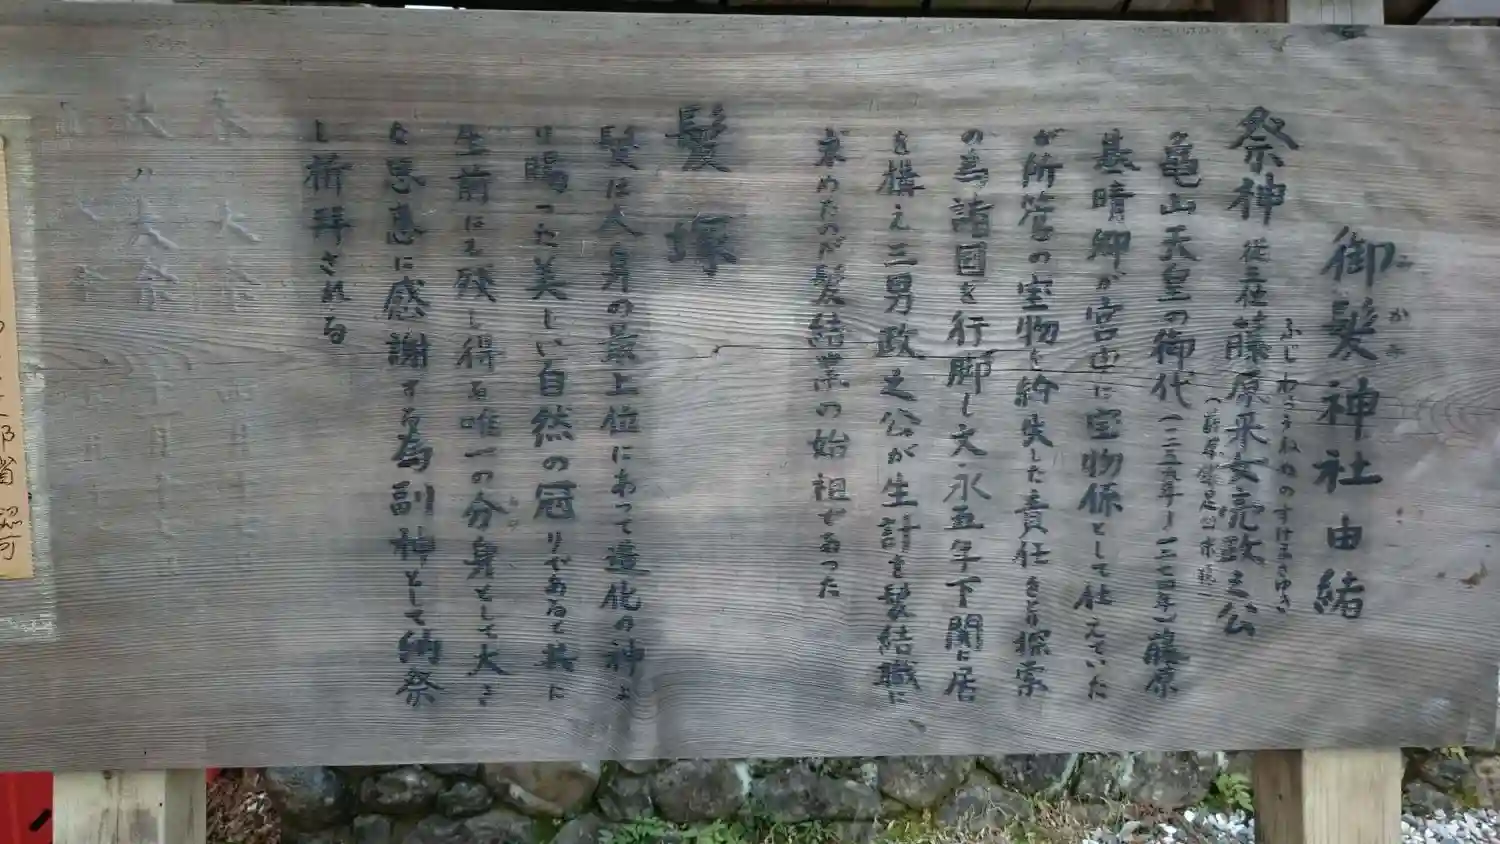 御髪神社由緒
みかみ
祭神 従五位 藤原采女亮政之公
ふじわらうねめのすけまさゆき
(藤原鎌足公末裔)
亀山天皇の御代(一二五九年〜一二七四年)藤原
基晴卿が宮中に宝物係として仕えていた
が所管の宝物を紛失した責任をとり探索
の為諸国を行脚し文永五年下関に居
を構え三男政之公が生計を髪結職に
求めたのが髪結業の始祖であった
髪塚
髪は人身の最上位にあって造化の神よ
り賜った美しい自然の冠りであると共に
生前にも残し得る唯一の分身として大き
な恩恵に感謝する為副神として納祭
し祈拝される